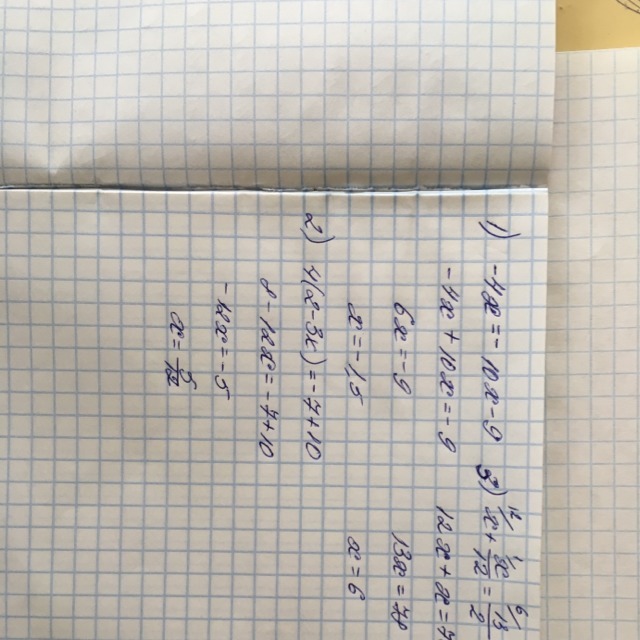 1) -4x = -10x - 9
-4x + 10x = -9
6x = -9
x = -1,5
2) 4(2-3x) = -7+10
8 - 12x = -7+10
-12x = -5
x = 5/12
3) 12/ x + 1x/12 = 6/ 13/2
12x + x = 7
13x = 78
x = 6